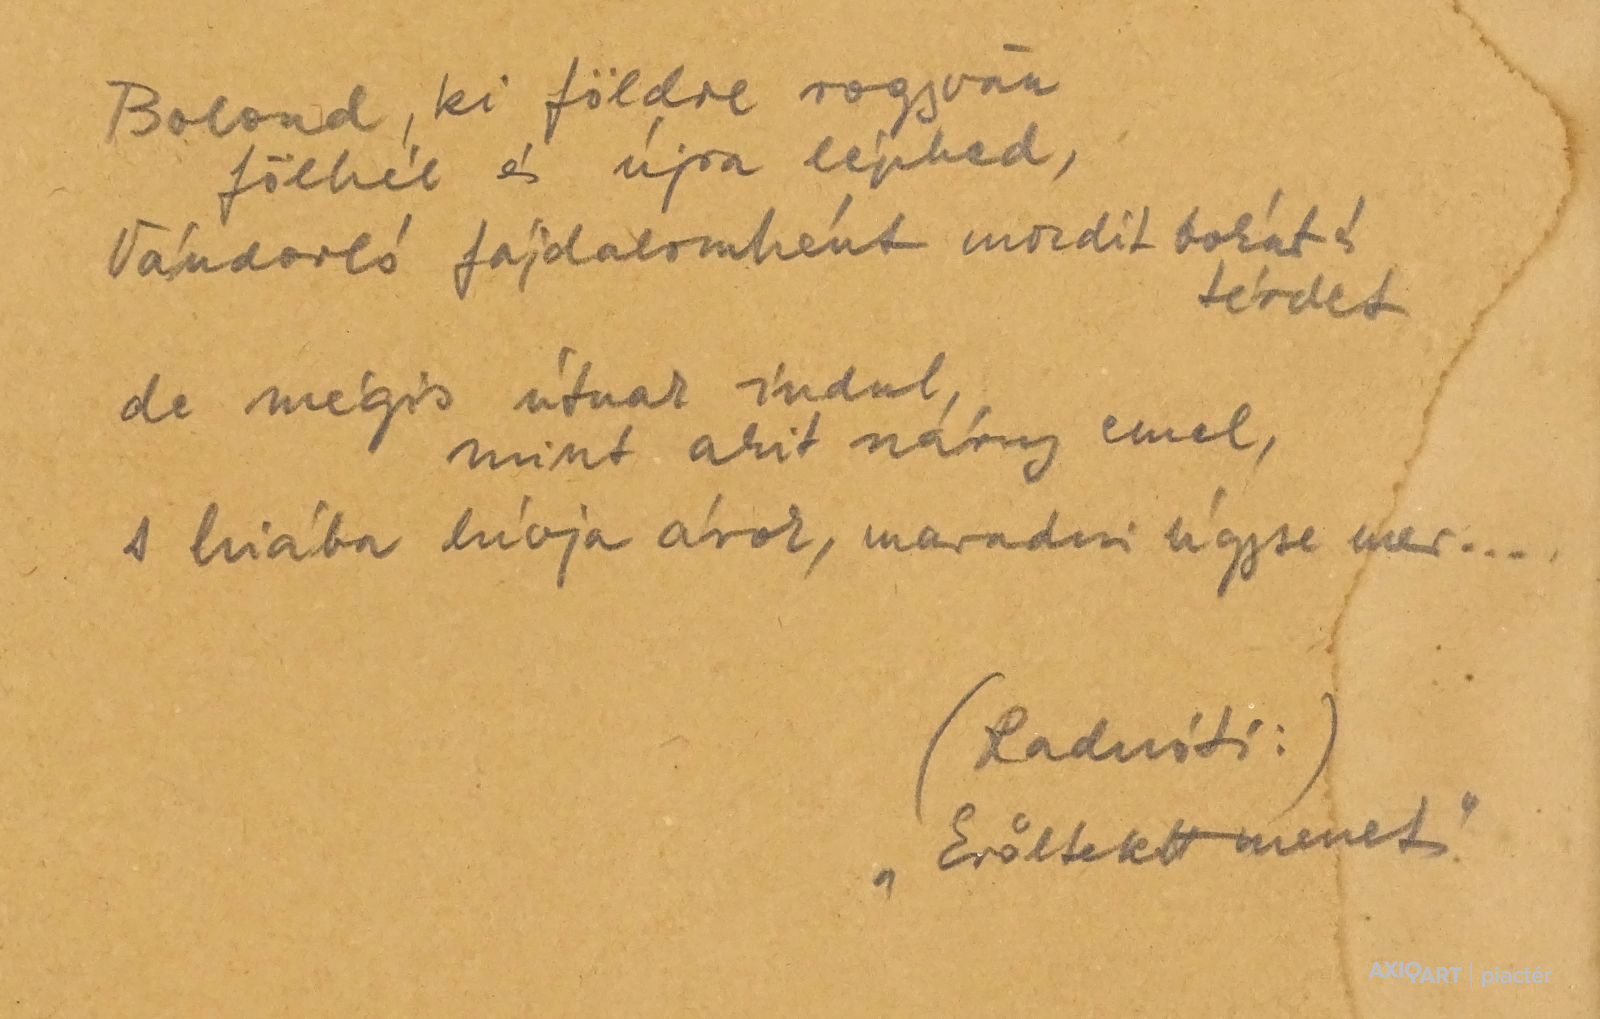 Bolond, ki földre rogyván
fölkél és újra lépked,
Vándorló fájdalomként mozdít bokát s
térdet
de mégis útnak indul,
mint akit szárny emel,
s hiába hívja árok, maradni úgyse mer....
(Radnóti:)
„Erőltetett menet"
AXIOART | piactér